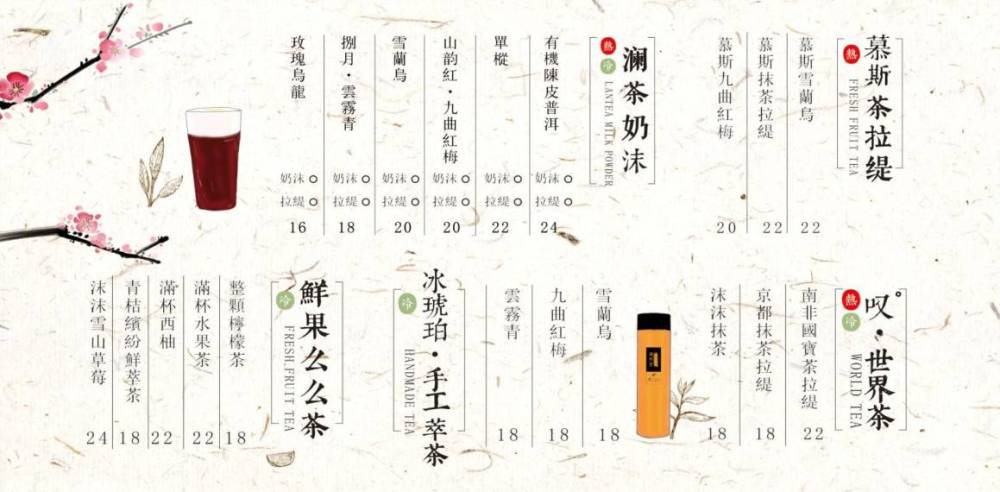 慕斯茶拉缇
熱
FRESH FRUIT TEA
慕斯雪蘭烏
22
慕斯抹茶拉緹
22
慕斯九曲紅梅
20
澜茶奶沫
熱
冷
LANTEA MILK POWDER
有機陳皮普洱
奶沫
拉緹
24
單樅
奶沫
拉緹
22
山韵紅·九曲紅梅
奶沫
拉緹
20
雪蘭烏
奶沫
拉緹
20
捌月·雲霧青
奶沫
拉緹
18
玫瑰烏龍
奶沫
拉緹
16
叹。世界茶
熱
冷
WORLD TEA
南非國寶茶拉緹
22
京都抹茶拉緹
18
沫沫抹茶
18
雪蘭烏
18
九曲紅梅
18
雲霧青
18
冰琥珀·手工萃茶
冷
HANDMADE TEA
鮮果么么茶
冷
FRESH FRUIT TEA
整顆檸檬茶
18
滿杯水果茶
22
滿杯西柚
22
青桔繽紛鮮萃茶
18
沫沫雪山草莓
24